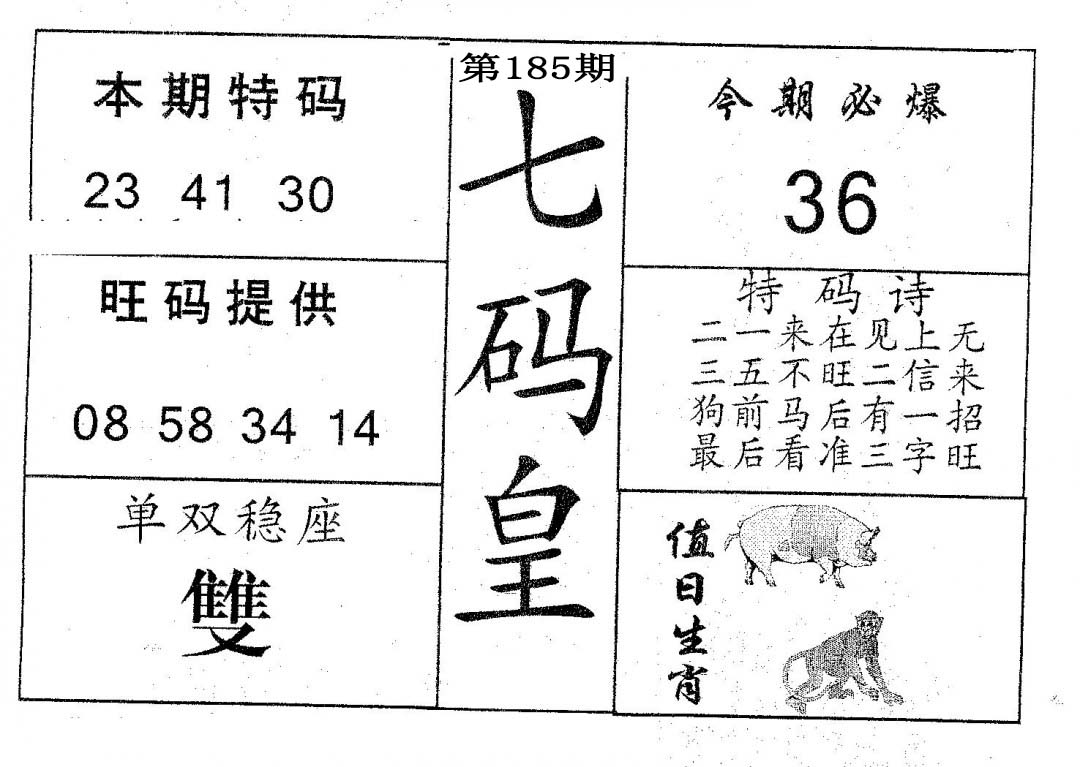 第185期
七码皇
本期特码
23 41 30
旺码提供
08 58 34 14
单双稳座
雙
今期必爆
36
特码诗
二一来在见上无
三五不旺二信来
狗前马后有一招
最后看准三字旺
值日生肖